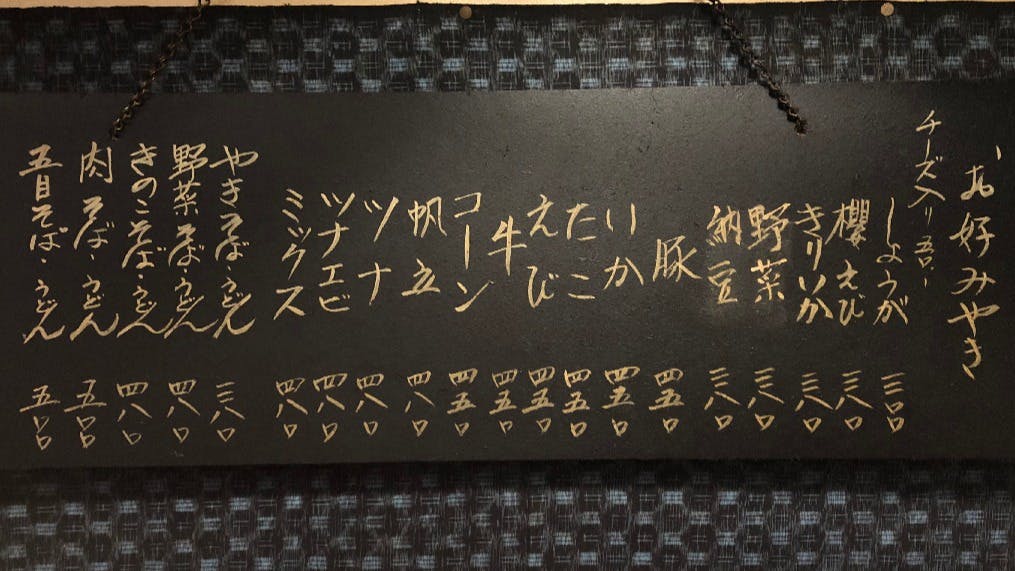 、お好みやき
チーズ入り 五〇、
しょうが 三〇〇
櫻えび 三八〇
きりいか 三八〇
野菜 三八〇
納豆 三八〇
豚 四五〇
いか 四五〇
たこ 四五〇
えび 四五〇
牛 四五〇
コーン 四五〇
帆立 四八〇
ツナ 四八〇
ツナエビ 四八〇
ミックス 四八〇
やきそば・うどん 三八〇
野菜そば・うどん 四八〇
きのこそば・うどん 四八〇
肉そば・うどん 五〇〇
五目そば・うどん 五〇〇